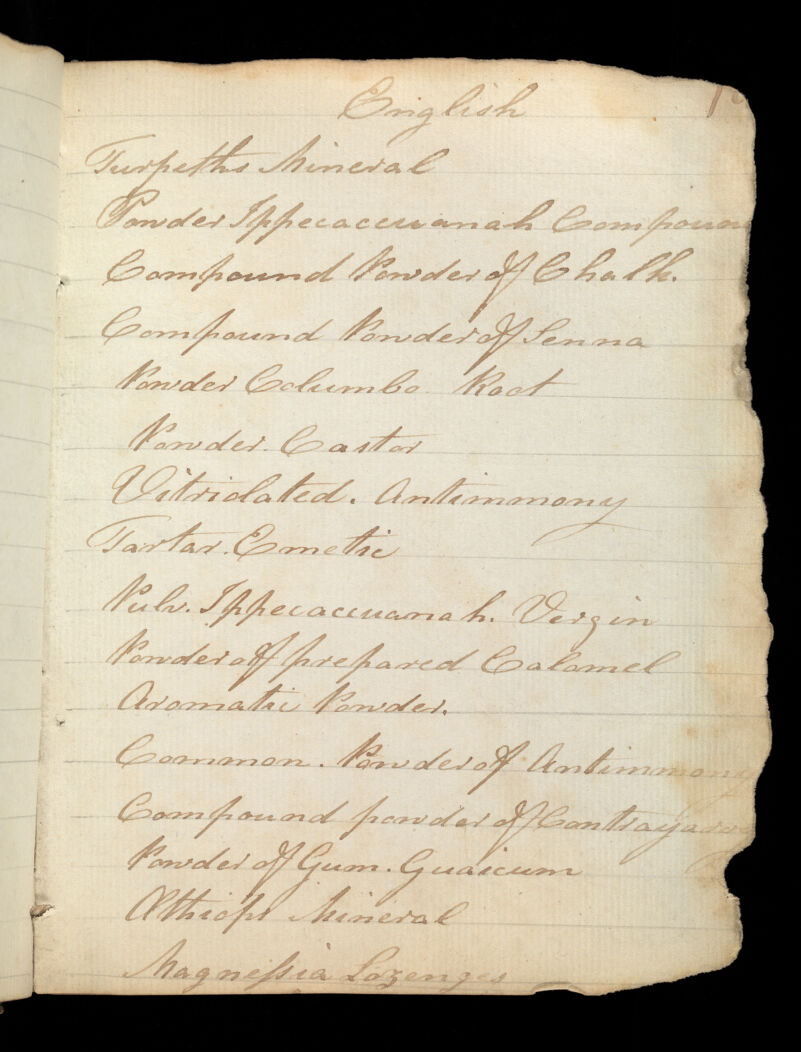 English
Turpeths Mineral
Powder Ippecaccuanah Compoun
Compound Powder of Chalk.
Compound Powder of Senna
Powder Columbo Root
Powder. Castor
Vitriolated. Antimmony
Tartar. Emetic
Pulv. Ippecaccuanah. Vergin
Powder of prepared Calomel
Aromatic Powder.
Common. Powder of Antimmony
Compound powder of
Powder of Gum. Guaicum
Æthiops Mineral
Magnessia Lozenges